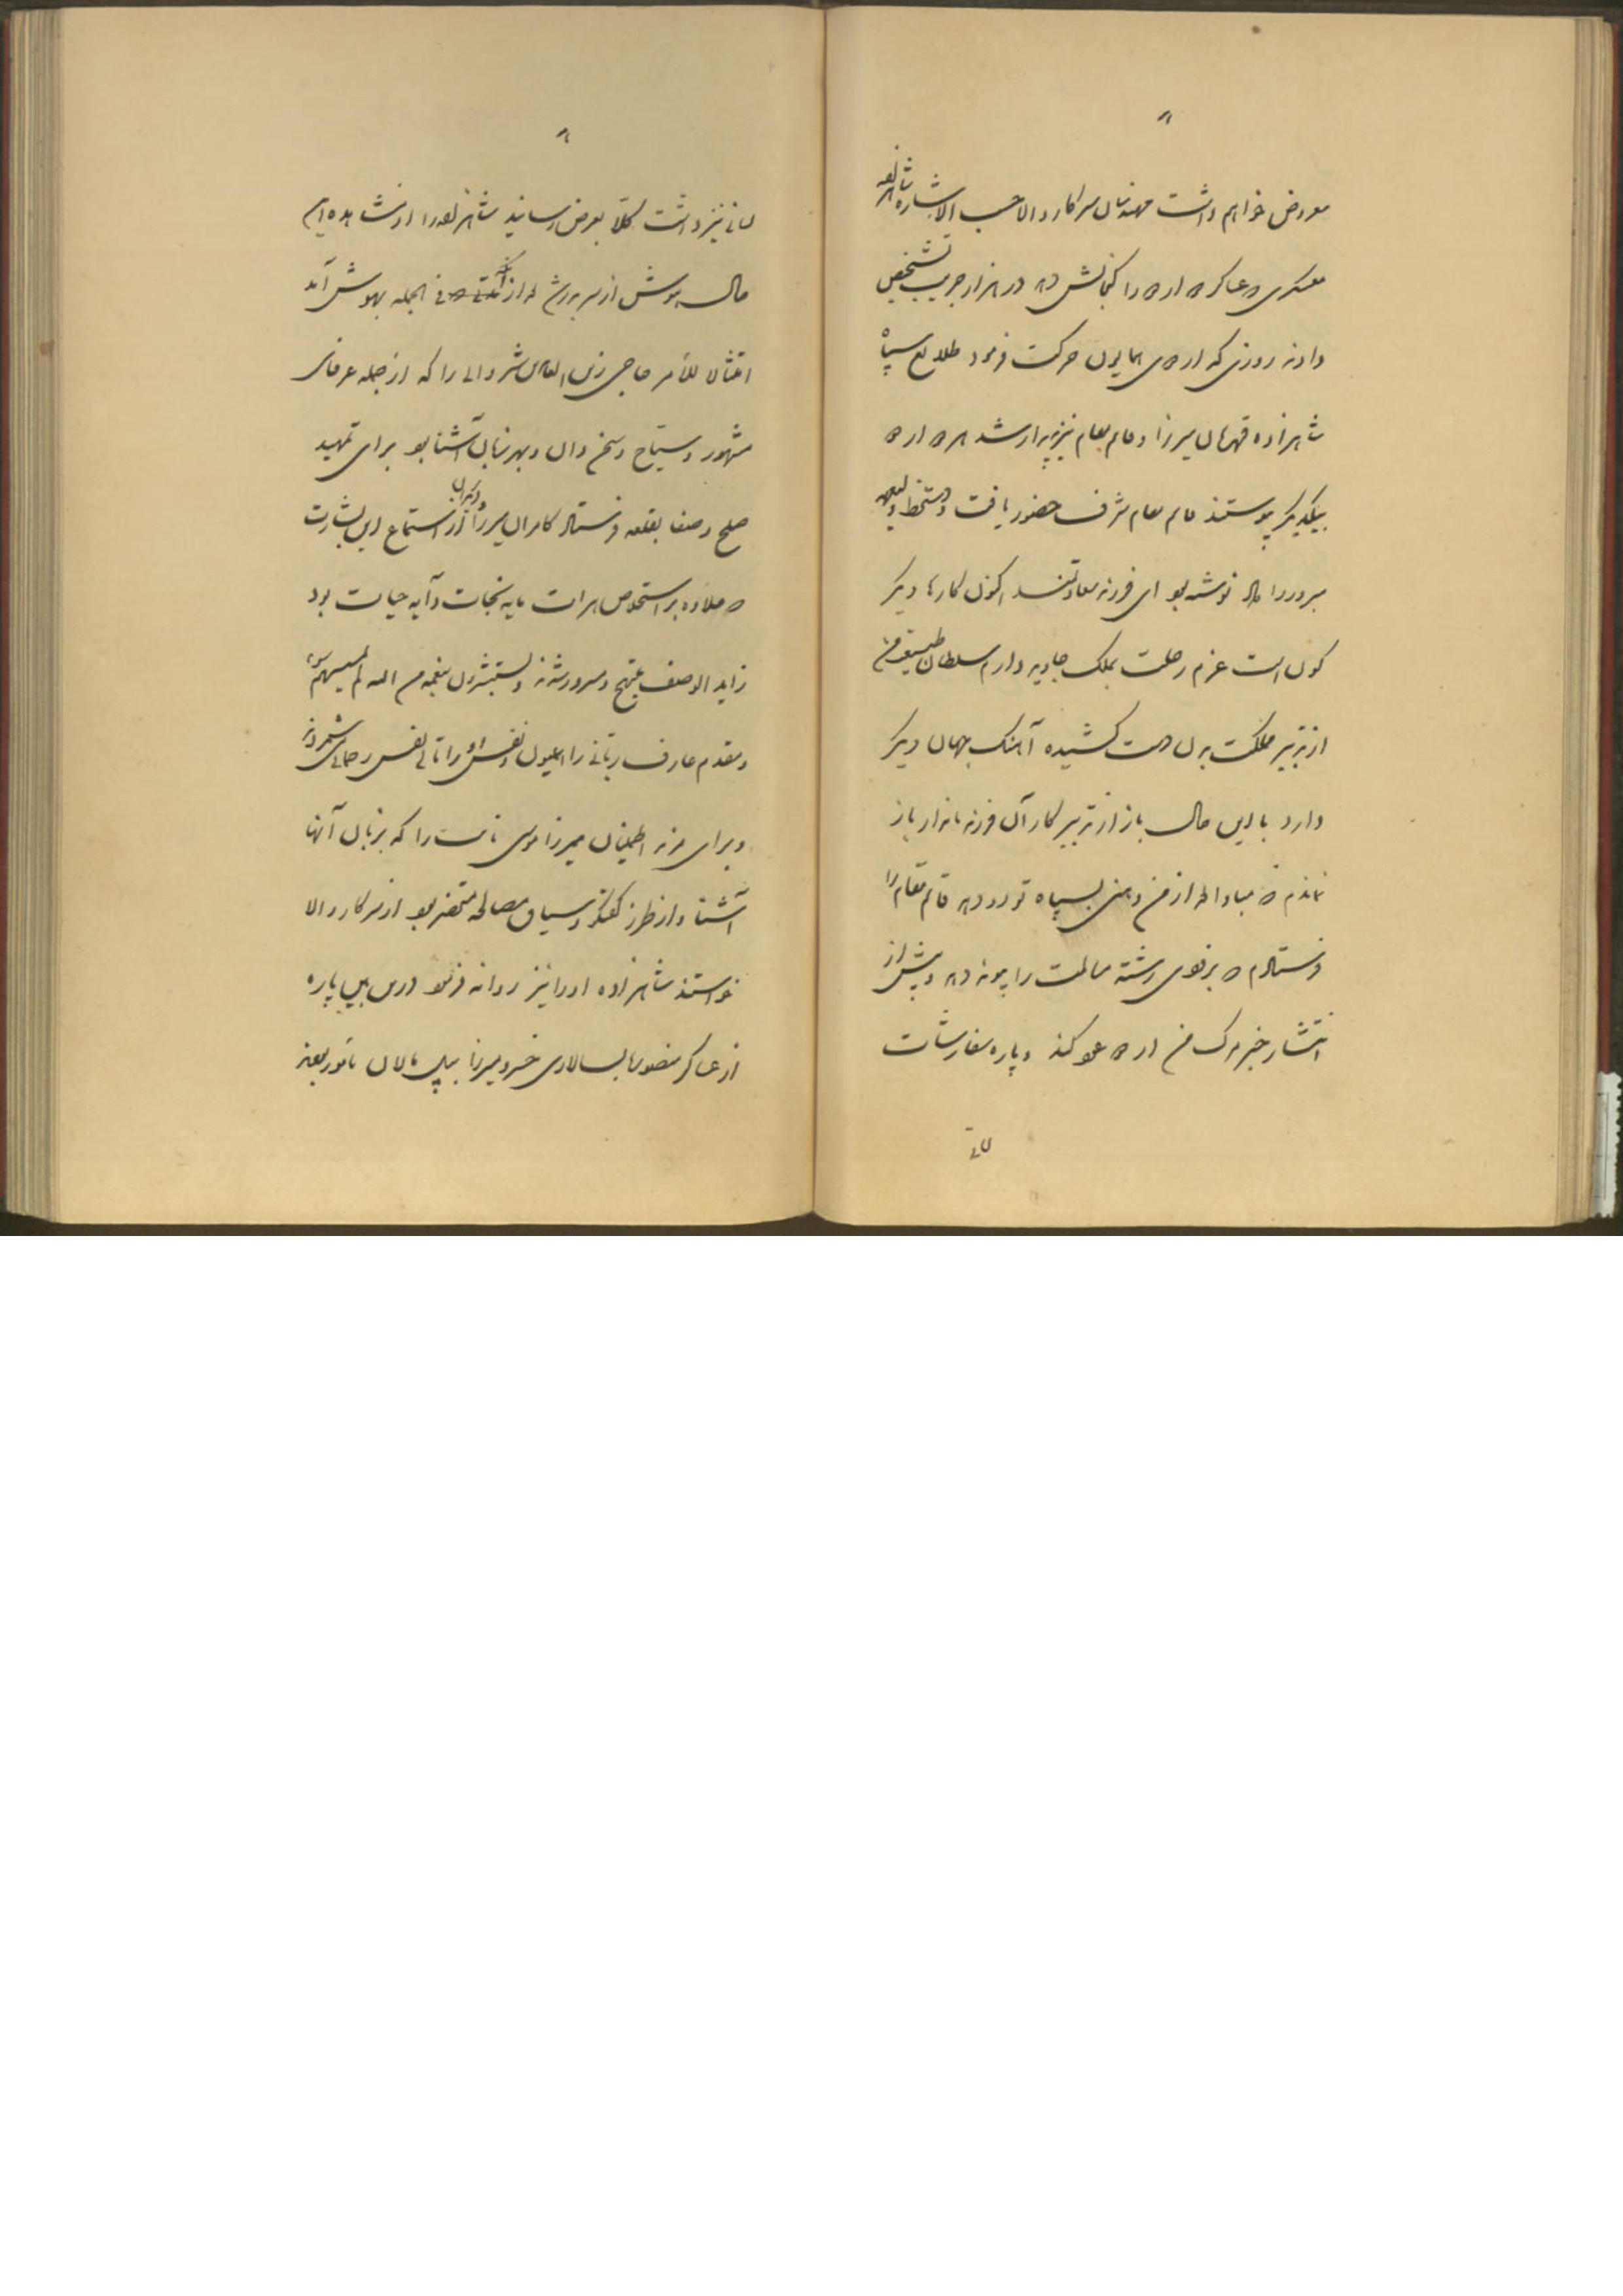 معروض خواهم داشت مهندسان سرکار والا حسب الاشاره شاهزاده
معسکری که عساکر اردو را گنجایش دهد در هزار جریب تشخیص
دادند روزی که اردوی همایون حرکت فرمود طلایع سپاه
شاهزاده قهرمان میرزا و قائم مقام نیز پدیدار شد هر دو اردو
بیکدیگر پیوستند قائم مقام شرف حضور یافت و دستخط ولیعهد
مبرور را داد نوشته بود ای فرزند سعادتمند اکنون کارها دیگر
گون است عزم رحلت بملک جاوید دارم سلطان طبیعت من
از تدبیر مملکت بدن دست کشیده آهنگ جهان دیگر
دارد با این حال باز از تدبیر کار آن فرزند نامدار باز
نماندم که مبادا بعد از من وهنی بسپاه تو رو دهد قائم مقام را
فرستادم که بزودی رشته مسالمت را پیوند دهد و پیش از
انتشار خبر مرگ من اردو عود کند و پاره سفارشات
لسانی
لسانی نیز داشت کلاً بعرض رسانید شاهزاده را از مشاهده این
حال هوش از سر پرش بعد از فی الجمله بهوش آمد
امتثالا للأمر حاجی زین العابدین شیروانی را که از جمله عرفای
مشهور و سیاح و سخن دان و بهر زبان آشنا بود برای تمهید
صلح و صفا بقلعه فرستاد کامران میرزا و دیگران از استماع این بشارت
که علاوه بر استخلاص هرات مایه نجات و آیه حیات بود
زاید الوصف مبتهج و مسرور شدند و یستبشرون بنعمة من الله لم یمسسهم سوء
و مقدم عارف ربانی را میمون و نفس او را تالی نفس رحمانی شمردند
و برای مزید اطمینان میرزا موسی نایب را که بزبان آنها
آشنا و از طرز گفتگو و سیاق مصالحه مستحضر بود از سرکار والا
خواستند شاهزاده او را نیز روانه فرمود درین بین پاره
از عساکر منصوره بسالاری خسرو میرزا بپل مالان مأمور بودند